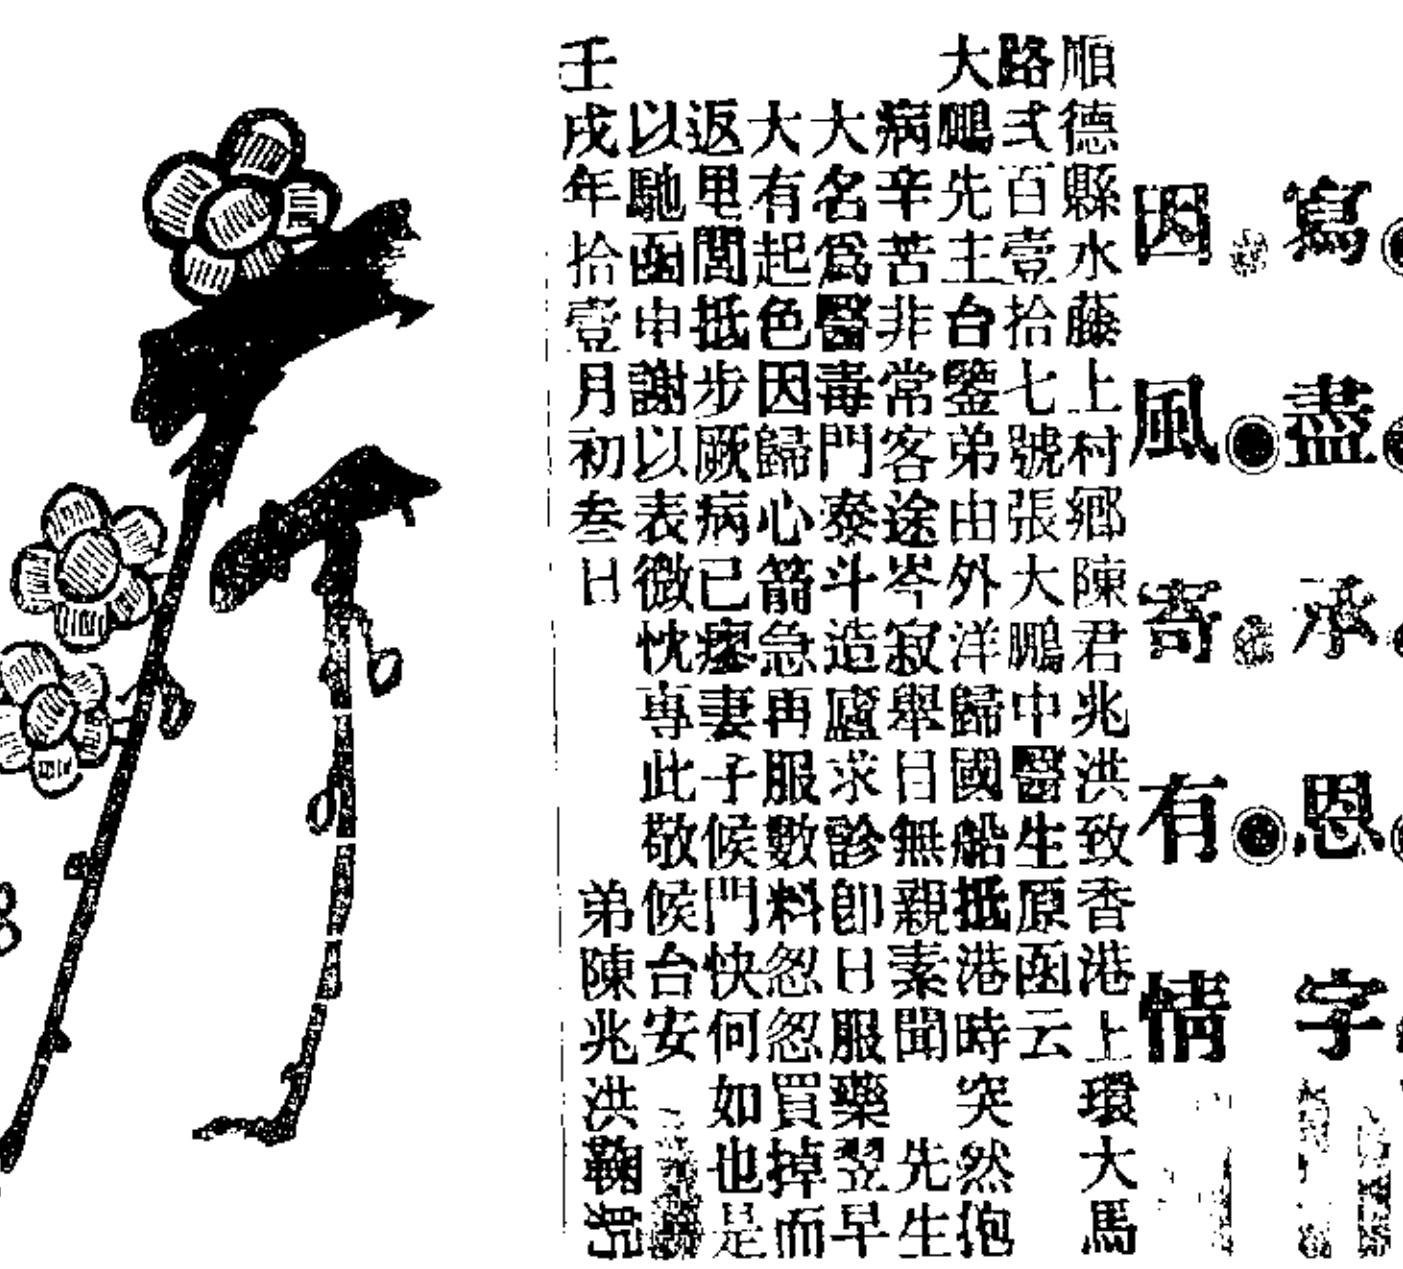 寫盡承恩字
因風寄有情
順德縣水藤上村鄉陳君兆洪致香港上環大馬
路弍百壹拾七號張大鵬中醫生原函云
大鵬先主台鑒弟由外洋歸國船抵港時突然抱
病辛苦非常客途岑寂舉目無親素聞先生
大名爲醫毒門泰斗造廬求診卽日服藥翌早
大有起色因歸心箭急再服數料怱怱買掉而
返甩閭抵步厥病已瘳妻子候門快何如也是
以馳函申謝以表微忱專此敬候台安
壬戌年拾壹月初叁日弟陳兆洪鞠